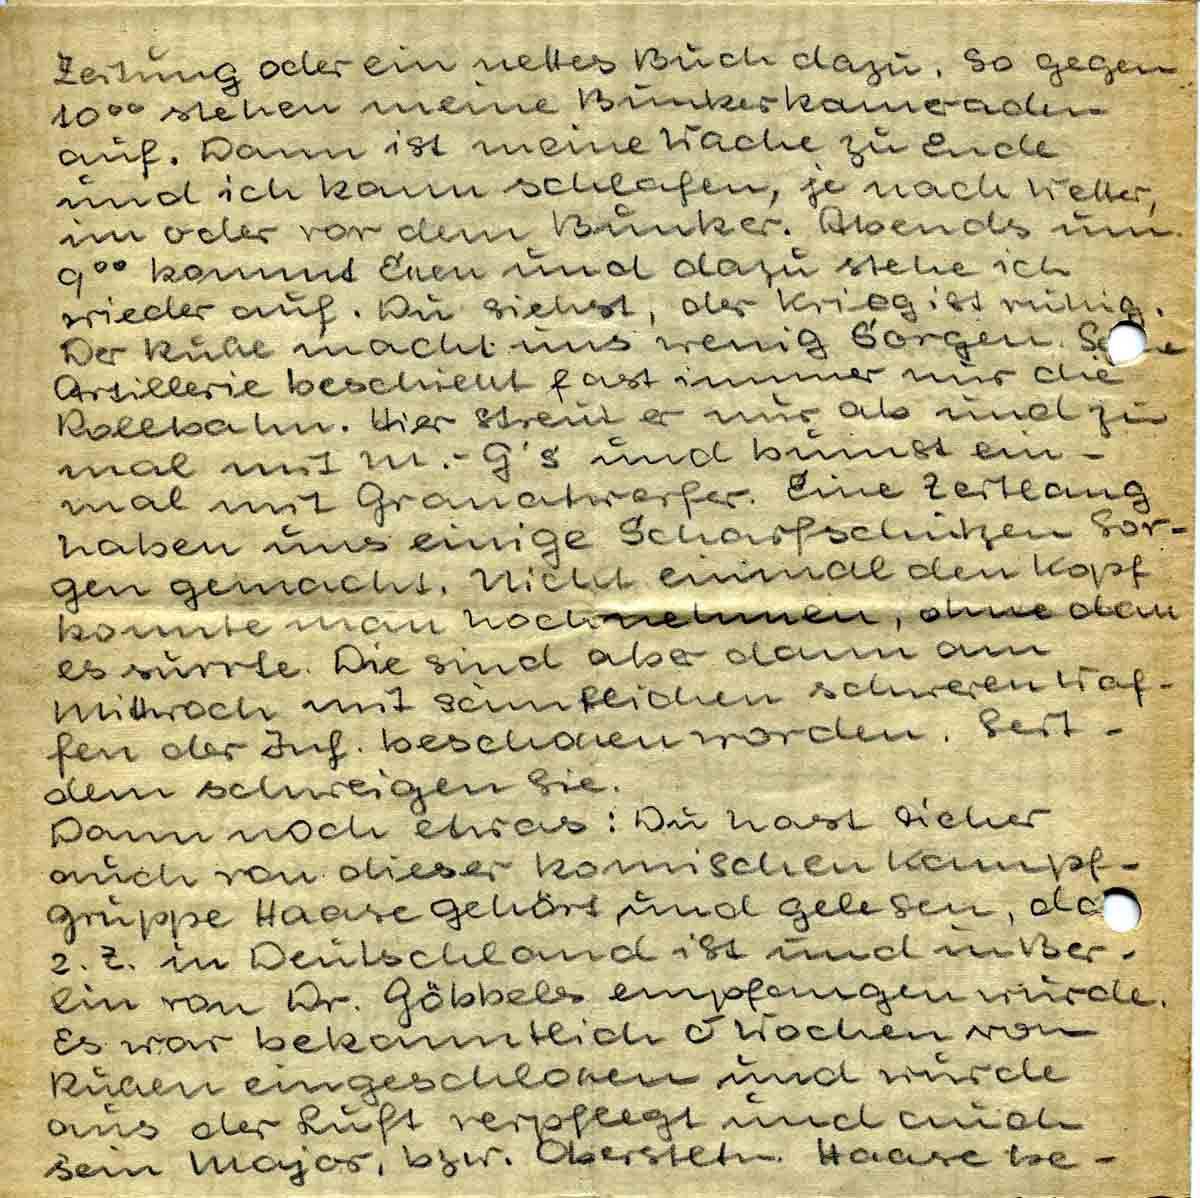 Zeitung oder ein nettes Buch dazu. So gegen
10°° stehen meine Bunkerkameraden
auf. Dann ist meine Wache zu Ende
und ich kann schlafen, je nach Wetter,
im oder vor dem Bunker. Abends um
9°° kommt Essen und dazu stehe ich
wieder auf. Du siehst, der Krieg ist ruhig.
Der Ruße macht uns wenig Sorgen. Seine
Artillerie beschießt fast immer nur die
Rollbahn. Hier streut er nur ab und zu
mal mit M.-G's und bumst ein-
mal mit Granatwerfer. Eine Zeitlang
haben uns einige Scharfschützen Sor-
gen gemacht. Nicht einmal den Kopf
konnte man hochnehmen, ohne daß
es surrte. Die sind aber dann am
Mittwoch mit sämtlichen schweren Waf-
fen der Inf. beschossen worden. Seit-
dem schweigen sie.
Dann noch etwas: Du hast sicher
auch von dieser komischen Kampf-
gruppe Haase gehört und gelesen, da
z. Z. in Deutschland ist und in Ber-
lin von Dr. Göbbels empfangen wurde.
Es war bekanntlich 5 Wochen von
Rußen eingeschlossen und wurde
aus der Luft verpflegt und auch
sein Major, bzw. Oberstltn. Haase be-